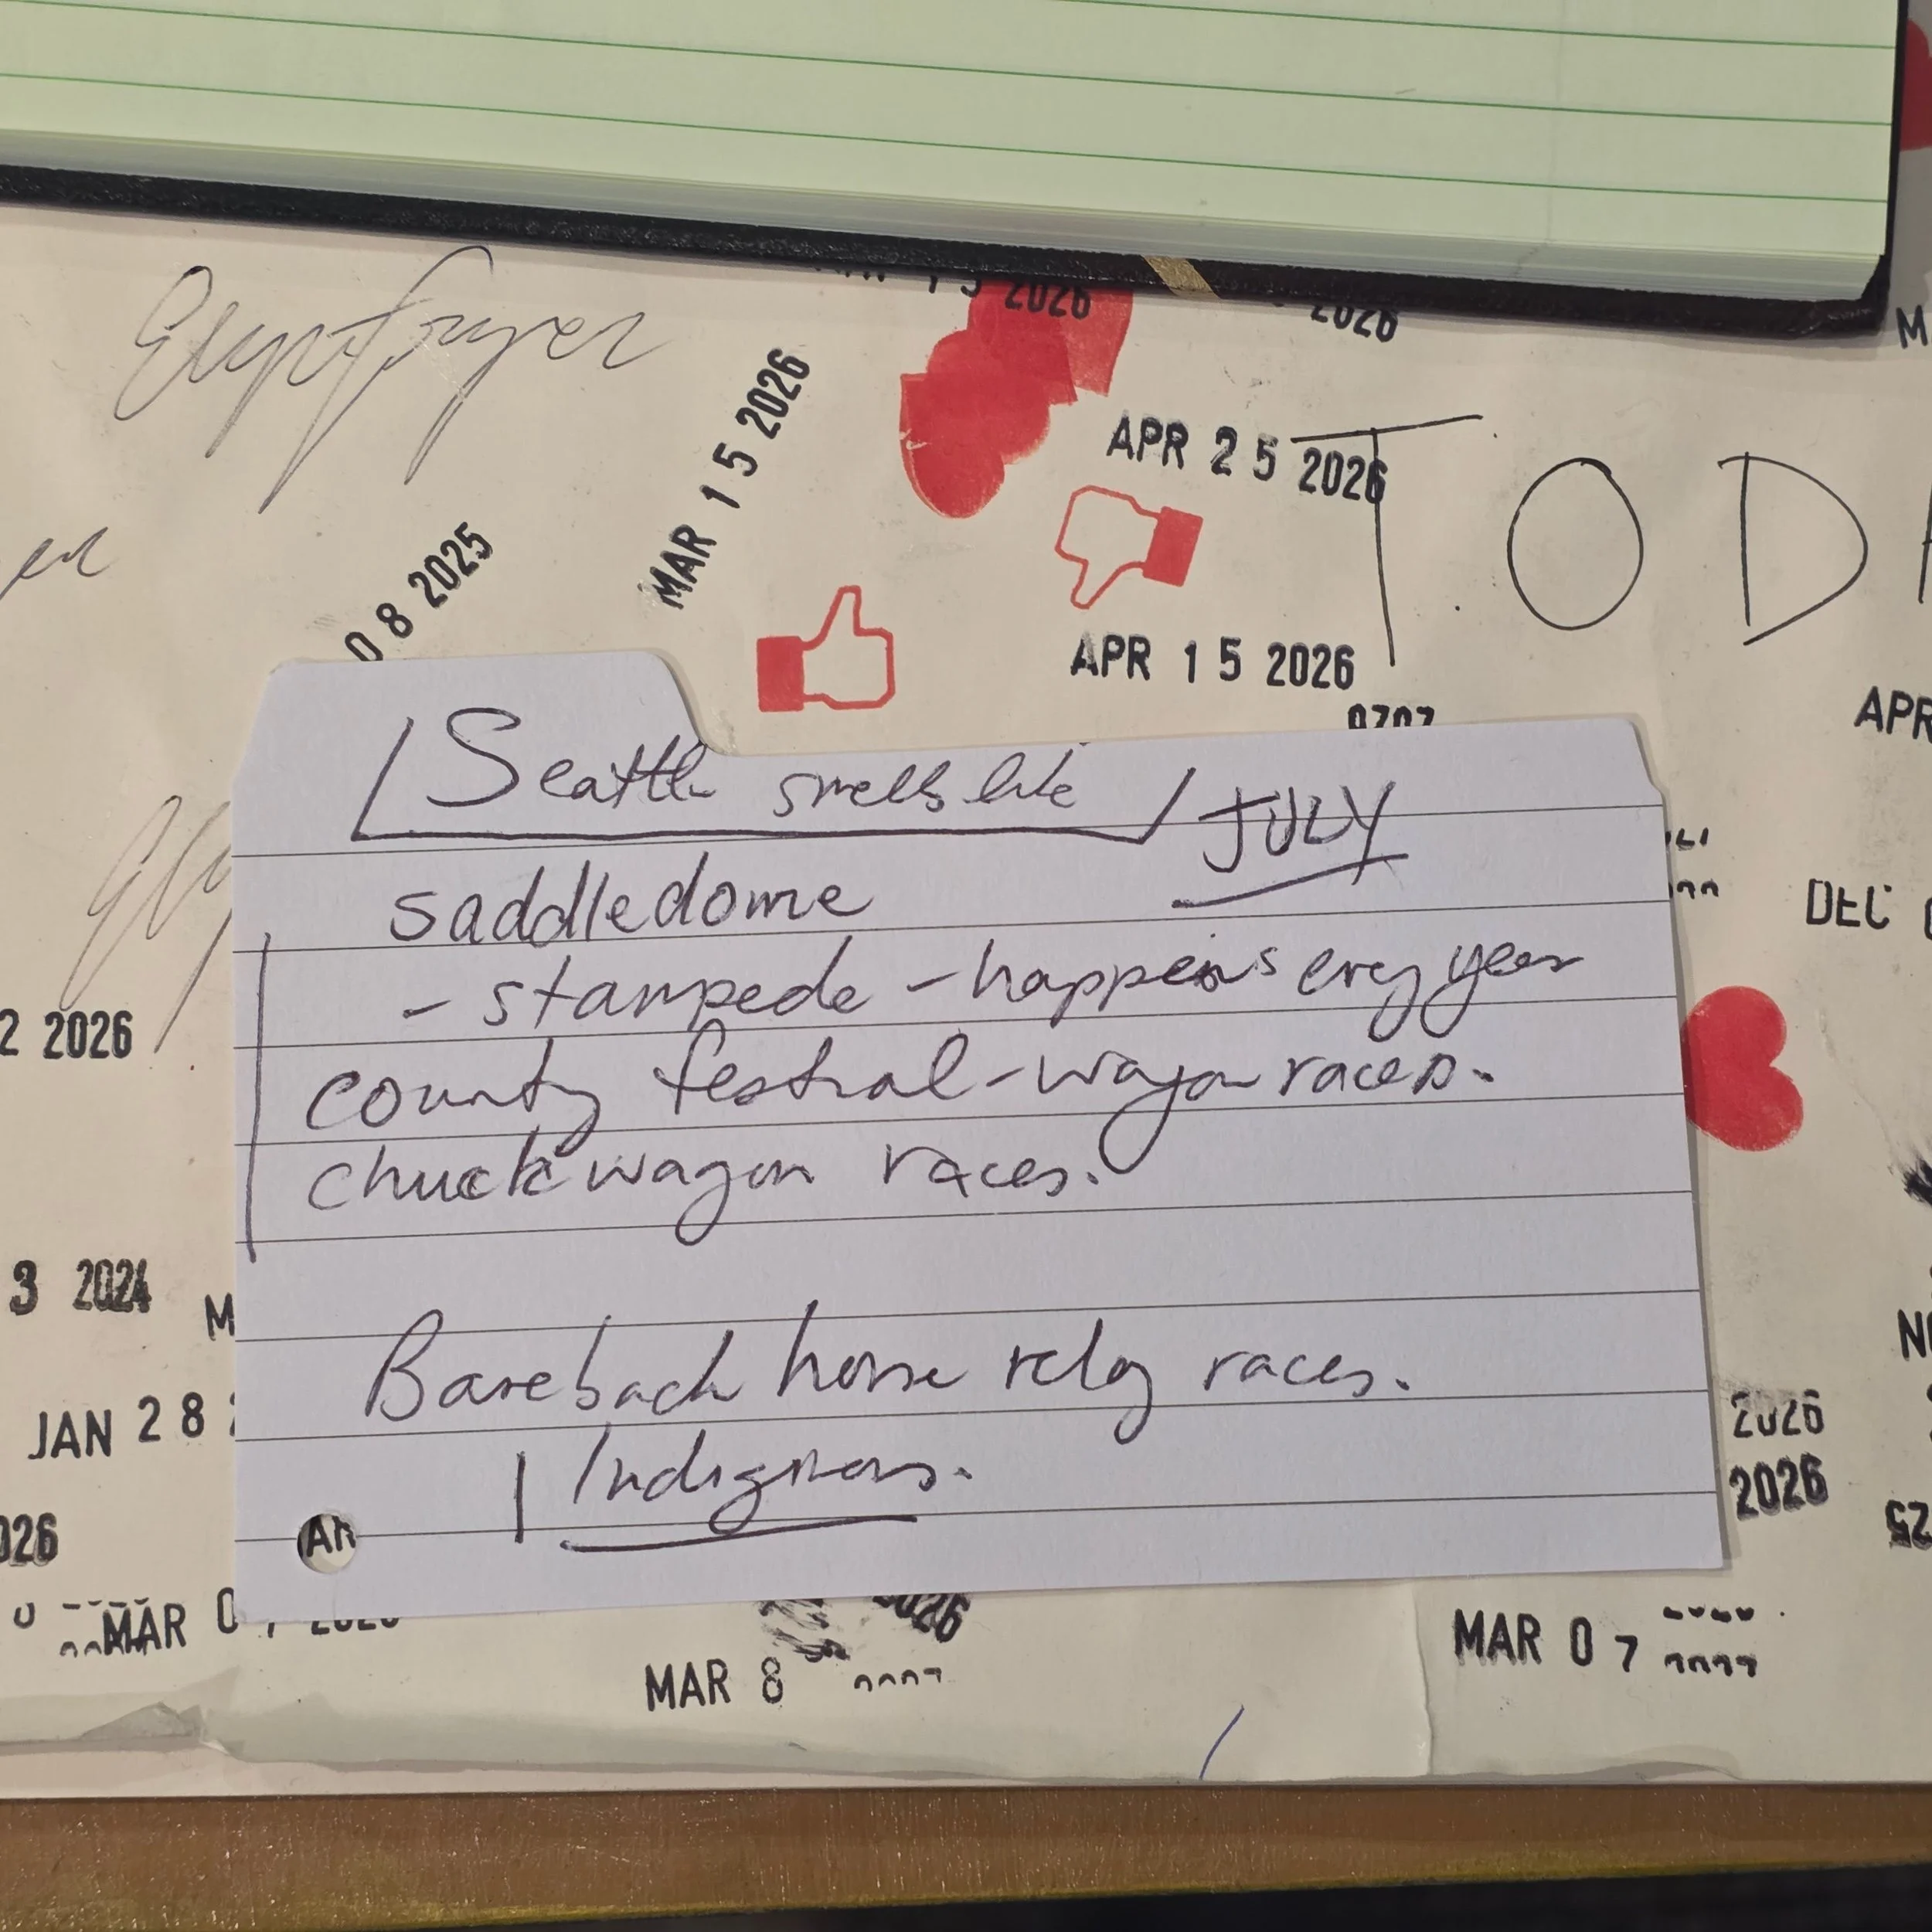 Elmpfryer
2026
2026
MAR 15 2026
APR 25 2026
TOD
08 2025
APR 15 2026
APR
Seattle smells like
JULY
saddledome
- stampede - happens every year
county festival - wagon races.
chuckwagon races.
DEC
2 2026
3 2024
M
Bareback horse relay races.
JAN 28
Indigenous.
2026
2026
026
MAR 0
MAR 8
MAR 07